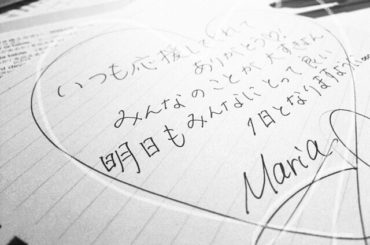 いつも応援してくれて
ありがとうう!
みんなのことが大すきです
明日もみんなにとって良い
1日となりますように
Maria